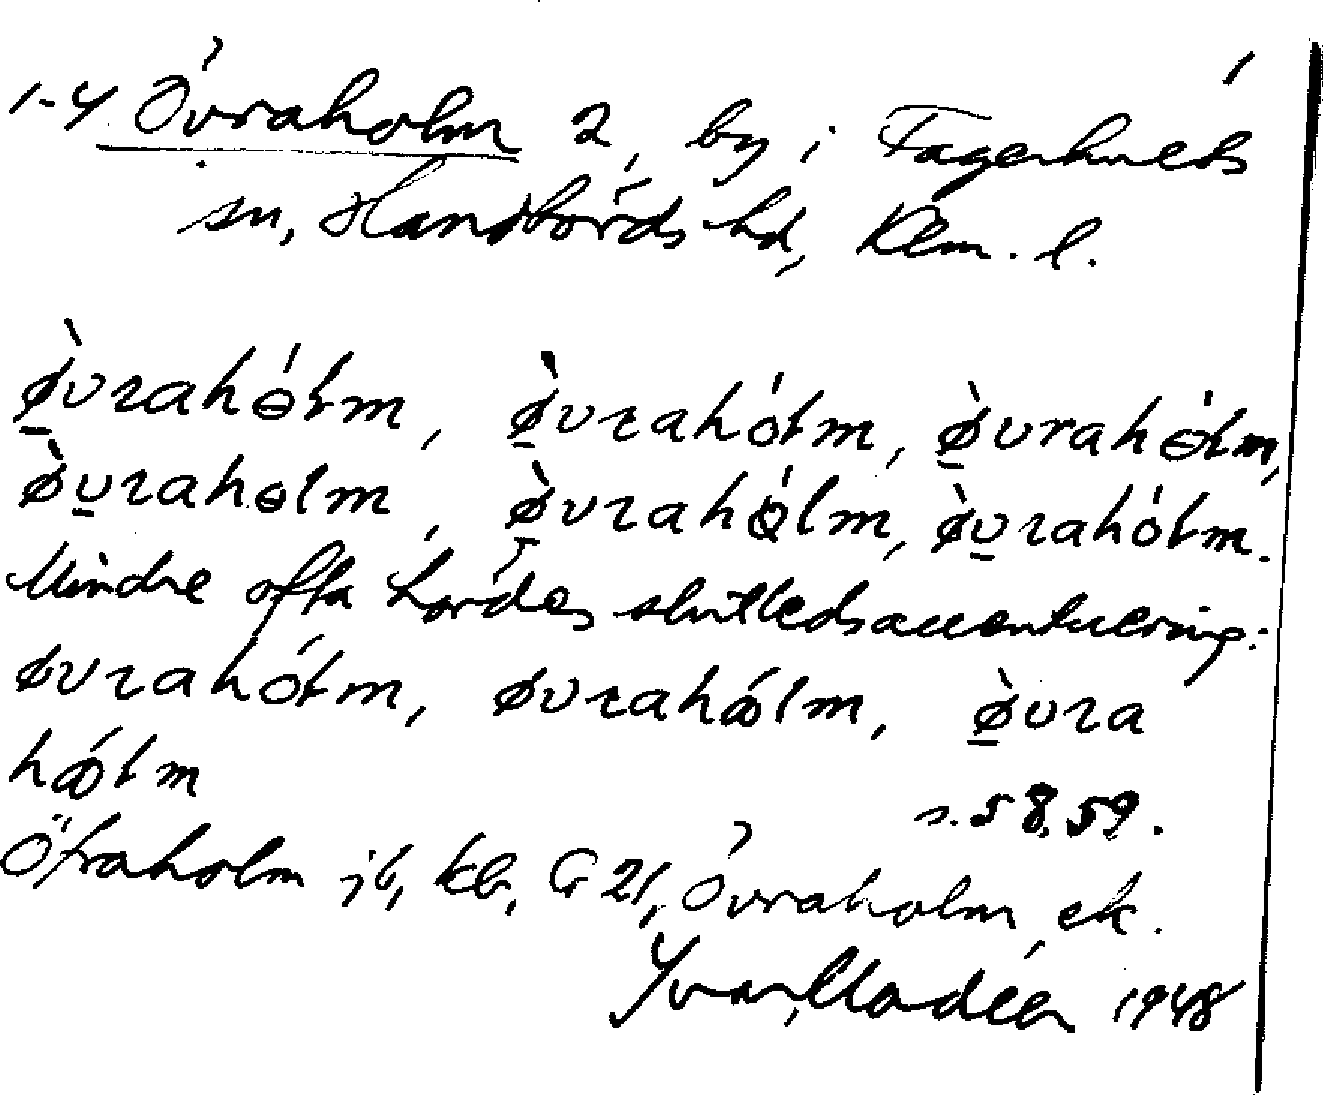 1-4 Övraholm 2, by i Fagerhults
sn, Handbörds hd, Klm. l.
ø̱̀vrahɵ́lm, ø̱̀vrahólm, ø̱̀vrahɵ́lm,
ø̀v̱rahɵlm, ø̱̀vrahǫ́lm, ø̀v̱rahólm.
Mindre ofta hördes slutledsaccentuering:
øvrahólm, øvrahǻlm, ø̱̀vra
hǻlm
s. 58, 59.
Öfraholm jb, kb, G 21, Övraholm, ek.
Yvar Modéer 1948